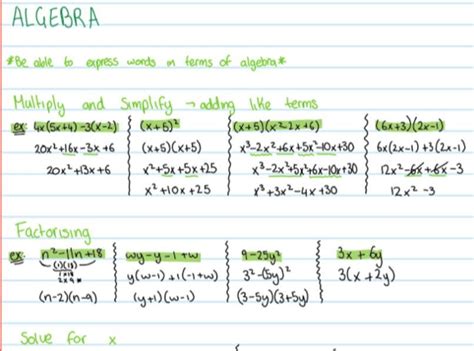 ALGEBRA
*Be able to express words in terms of algebra*
Multiply and Simplify → adding like terms
ex: 4x(5x+4)-3(x-2)
20x²+16x-3x+6
20x²+13x+6
(x+5)²
(x+5)(x+5)
x²+5x+5x+25
x²+10x+25
(x+5)(x²-2x+6)
x³-2x²+6x+5x²-10x+30
x³-2x²+5x²+6x-10x+30
x³+3x²-4x+30
(6x+3)(2x-1)
6x(2x-1)+3(2x-1)
12x²-6x+6x-3
12x²-3
Factorising
ex: n²-11n+18
(1)(18)
1x18
2x9*
(n-2)(n-9)
wy-y-1+w
y(w-1)+1(-1+w)
(y+1)(w-1)
9-25y²
3²-(5y)²
(3-5y)(3+5y)
3x+6y
3(x+2y)
Solve for x